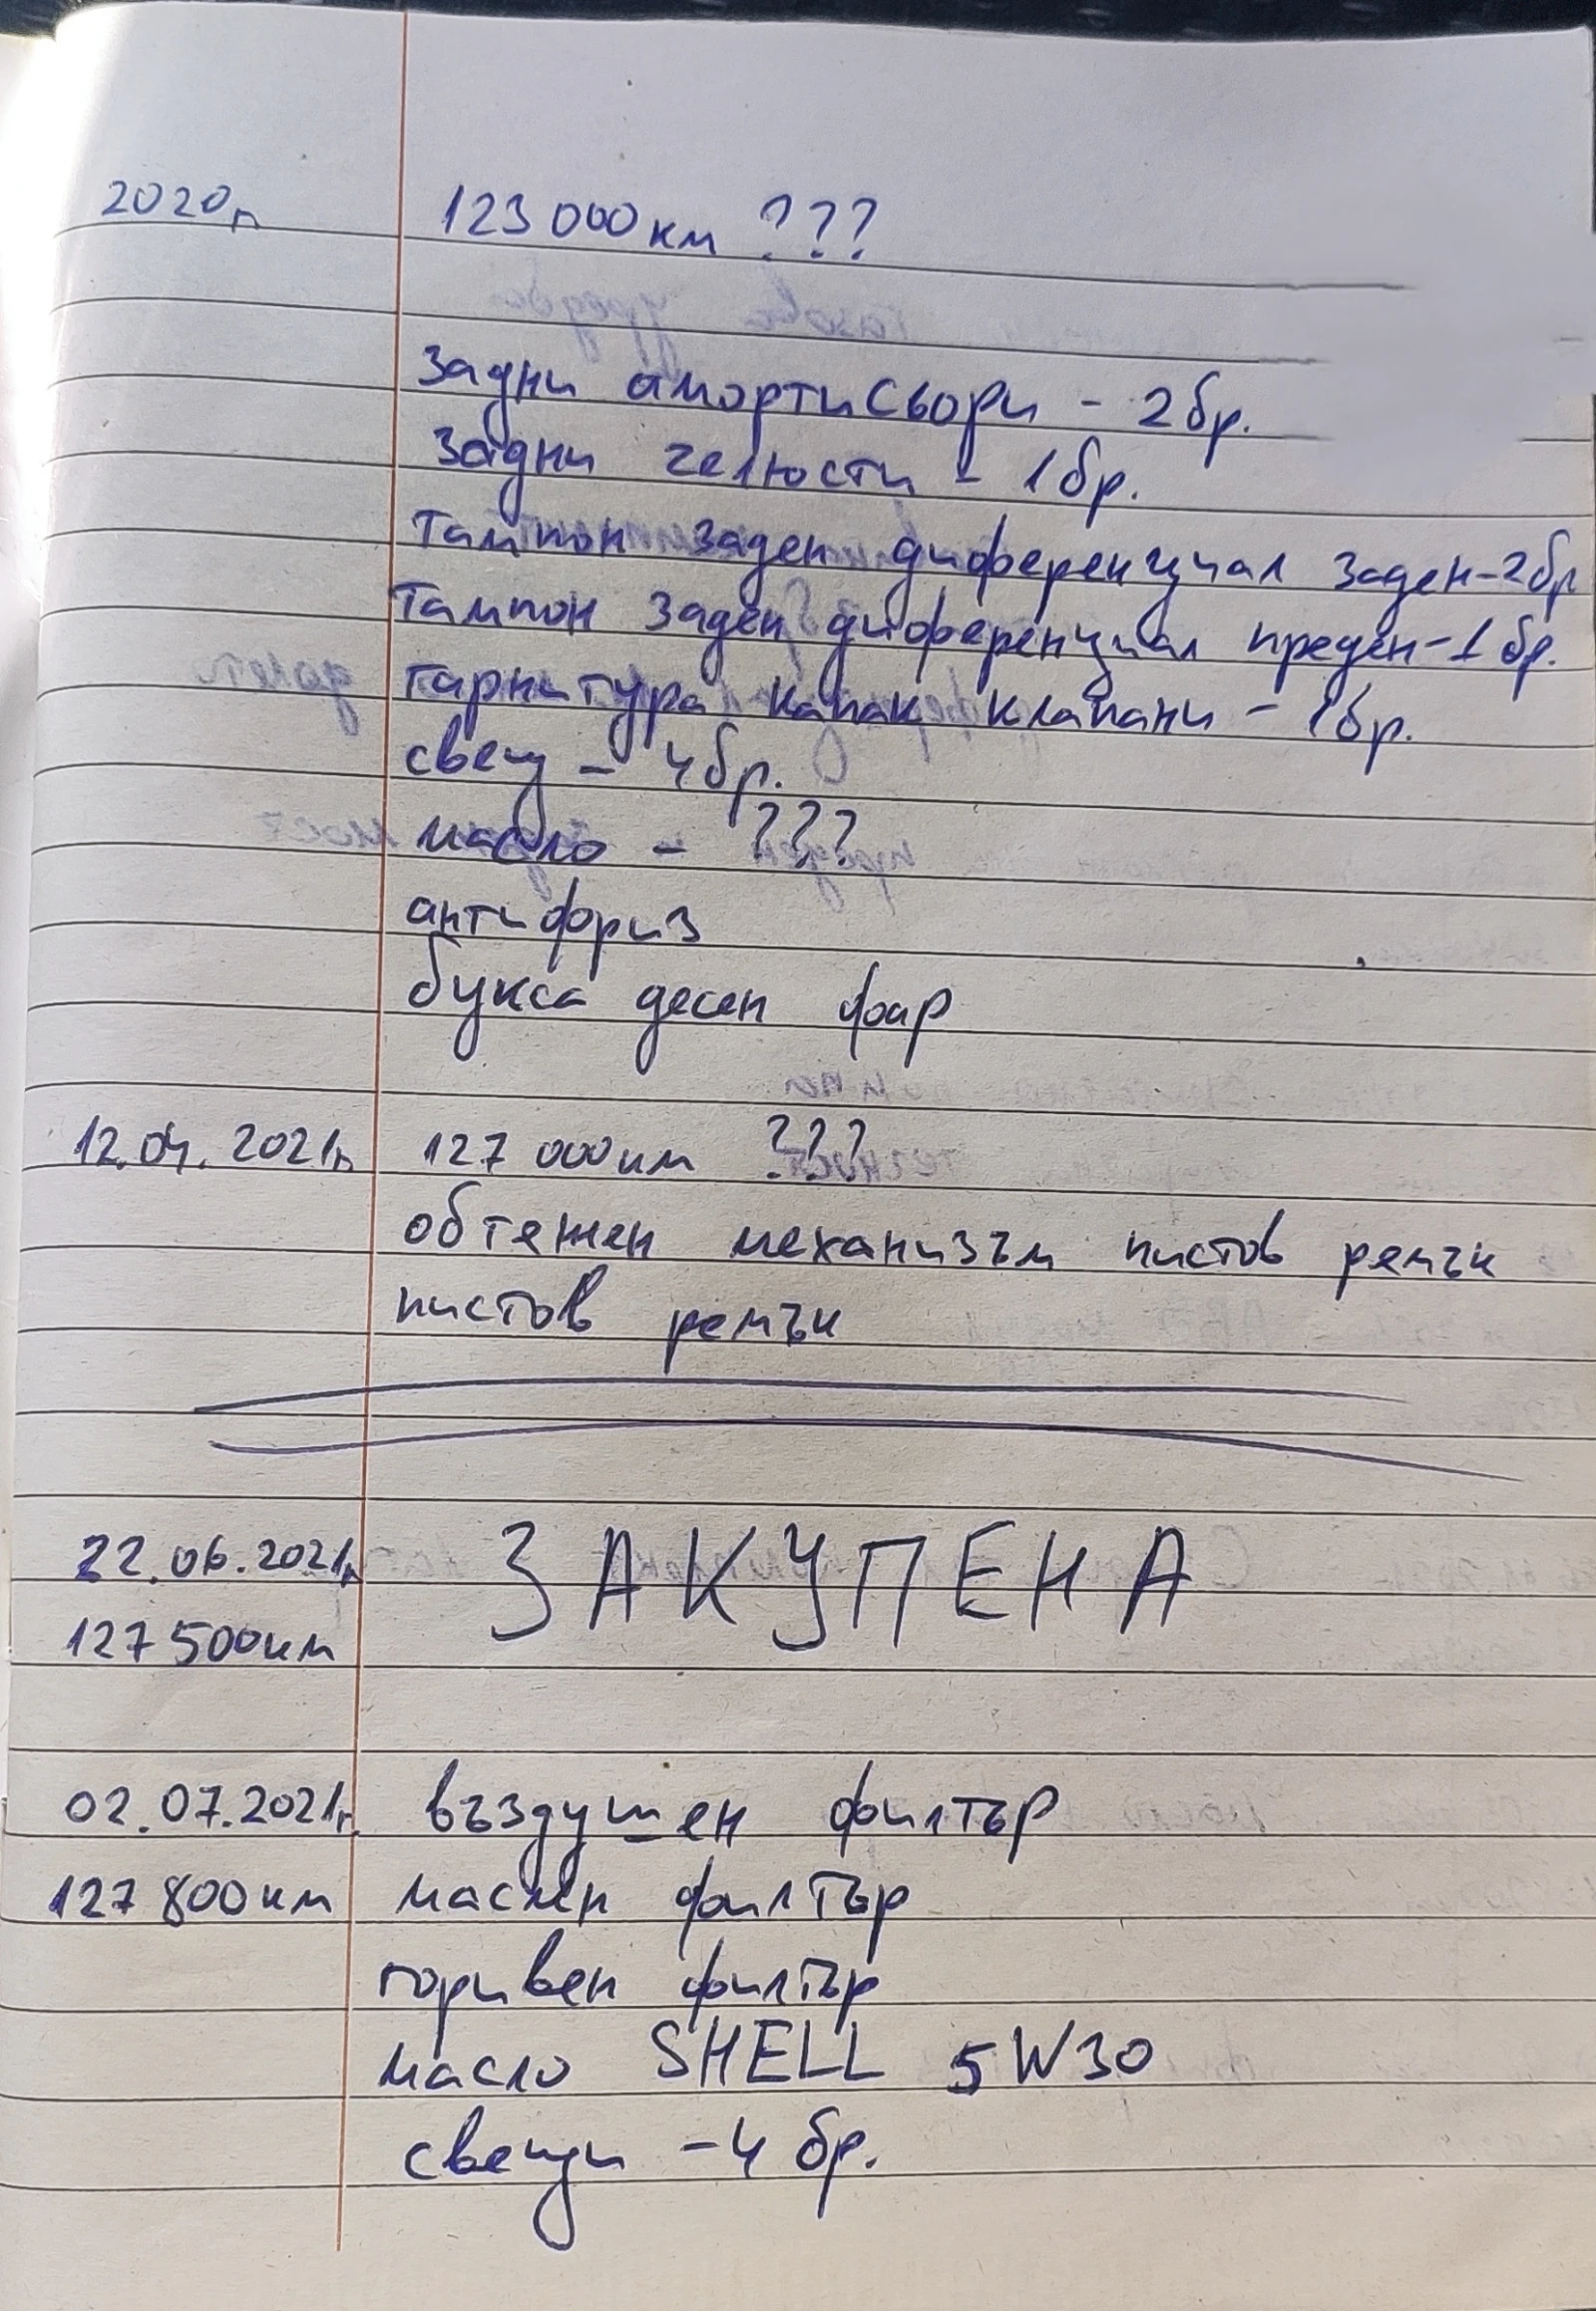 2020г. 123 000 км ???
Задни амортисьори - 2бр.
Задни челюсти - 1бр.
Тампон заден диференциал заден-2бр
Тампон заден диференциал преден-1бр.
гарнитура капак клапани - 1бр.
свещи - 4бр.
масло - ???
антифриз
букса десен фар
12.04.2021г. 127 000км ???
обтяжен механизъм пистов ремък
пистов ремък
22.06.2021г. ЗАКУПЕНА
127 500км
02.07.2021г. въздушен филтър
127 800км маслен филтър
горивен филтър
масло SHELL 5W30
свещи - 4 бр.